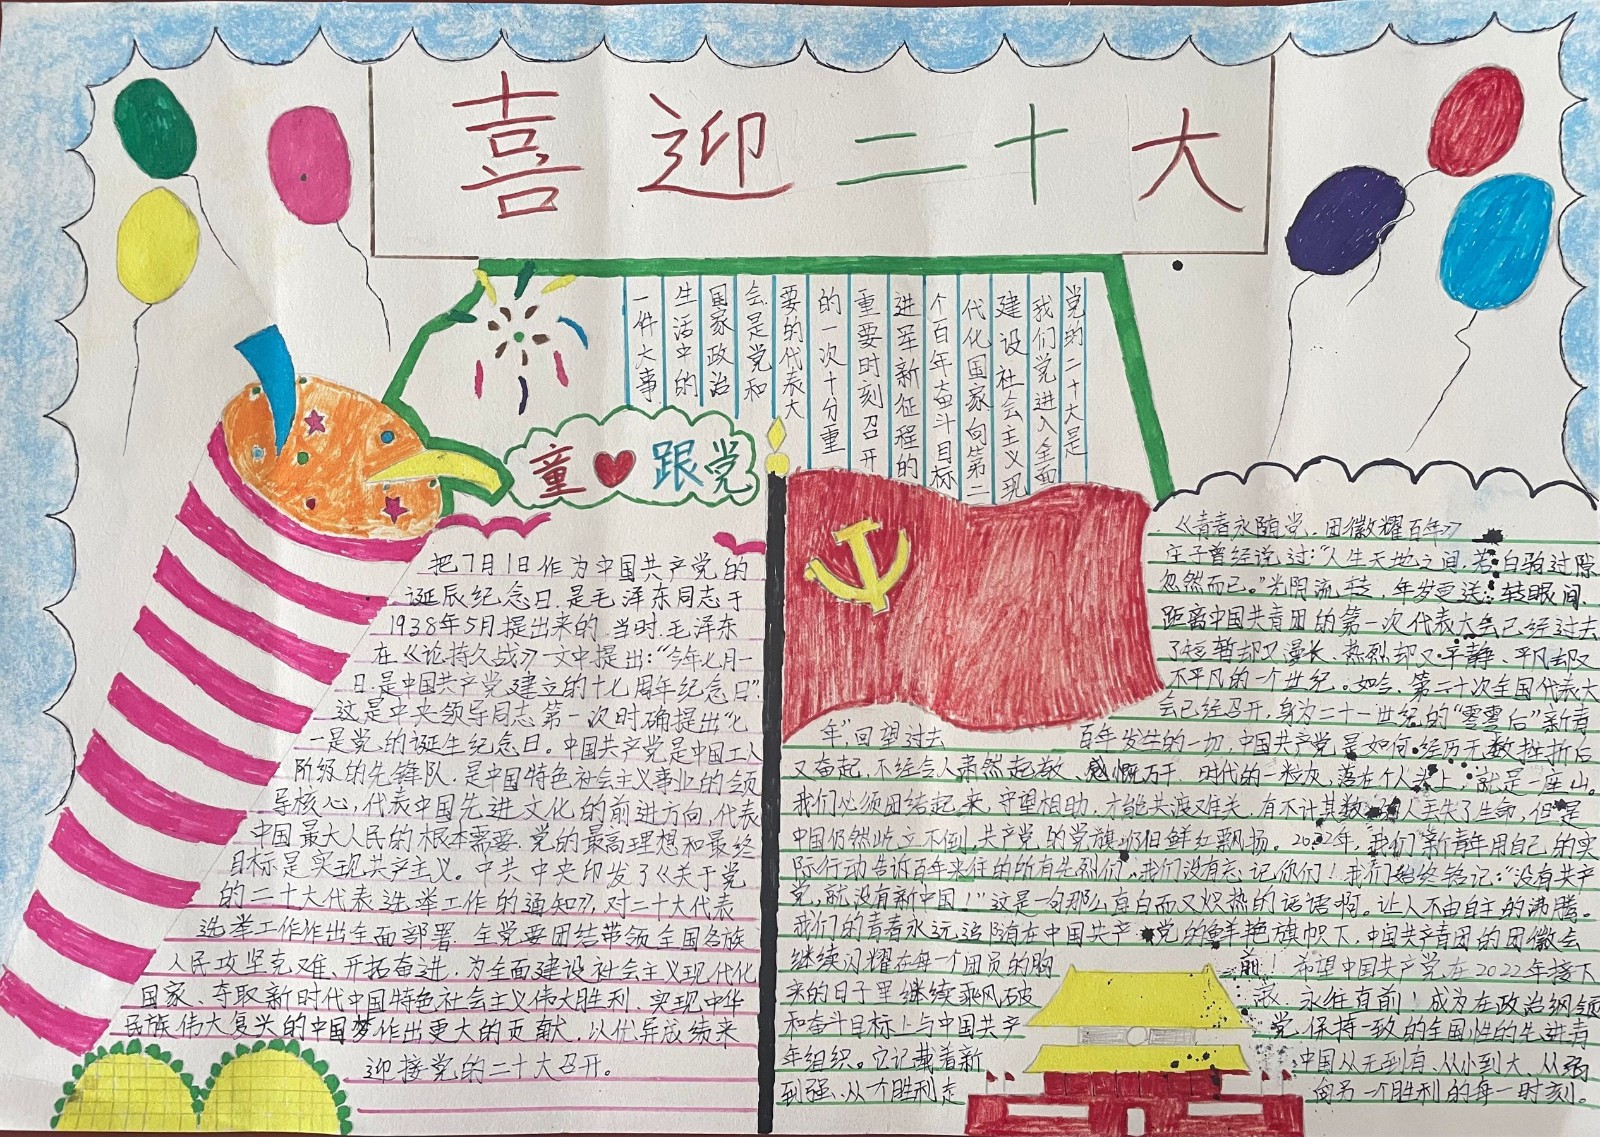 喜迎二十大
党的二十大是
我们党进入全面
建设社会主义现
代化国家向第二
个百年奋斗目标
进军新征程的
重要时刻召开
的一次十分重
要的代表大
会是党和
国家政治
生活中的
一件大事
童 跟党
把7月1日作为中国共产党的
诞辰纪念日.是毛泽东同志于
1938年5月提出来的.当时.毛泽东
在《论持久战》一文中提出:“今年七月一
日.是中国共产党建立的十七周年纪念日”.
这是中央领导同志第一次明确提出“七
一是党的诞生纪念日。中国共产党是中国工人
阶级的先锋队.是中国特色社会主义事业的领
导核心,代表中国先进文化的前进方向,代表
中国最大人民的根本需要.党的最高理想和最终
目标是实现共产主义。中共中央印发了《关于党
的二十大代表选举工作的通知》,对二十大代表
选举工作作出全面部署.全党要团结带领全国各族
人民攻坚克难、开拓奋进,为全面建设社会主义现代化
国家、夺取新时代中国特色社会主义伟大胜利.实现中华
民族伟大复兴的中国梦作出更大的贡献.以优异成绩来
迎接党的二十大召开。
《青春永随党.团徽耀百年》
庄子曾经说过:“人生天地之间,若白驹过隙
忽然而已.”光阴流转,年岁更迭:转眼间.
距离中国共青团的第一次代表大会已经过去
了短暂却又漫长、热烈却又平静、平凡却又
不平凡的一个世纪。如今.第二十次全国代表大
会已经召开,身为二十一世纪的“零零后”新青
年”,回望过去 百年发生的一切,中国共产党是如何经历无数挫折后
又奋起,不经令人肃然起敬、感慨万千.时代的一粒灰,落在个人头上,就是一座山。
我们必须团结起来,守望相助,才能共渡难关.有不计其数 人丢失了生命,但是
中国仍然屹立不倒,共产党的党旗仍旧鲜红飘扬。2022年,我们新青年用自己的实
际行动告诉百年来任的所有先烈们“我们没有忘记你们!我们始终铭记:“没有共产
党,就没有新中国!”这是一句那么直白而又炽热的话语啊。让人不由自主的沸腾。
我们的青春永远追随在中国共产党的鲜艳旗帜下,中国共青团的团徽会
继续闪耀在每一个团员的胸前!希望中国共产党在2022年接下
来的日子里继续乘风破 永往直前!成为在政治纲领
和奋斗目标上与中国共产党保持一致的全国性的先进青
年组织。它记载着新中国从无到有、从小到大、从弱
到强、从一个胜利走向另一个胜利的每一时刻。